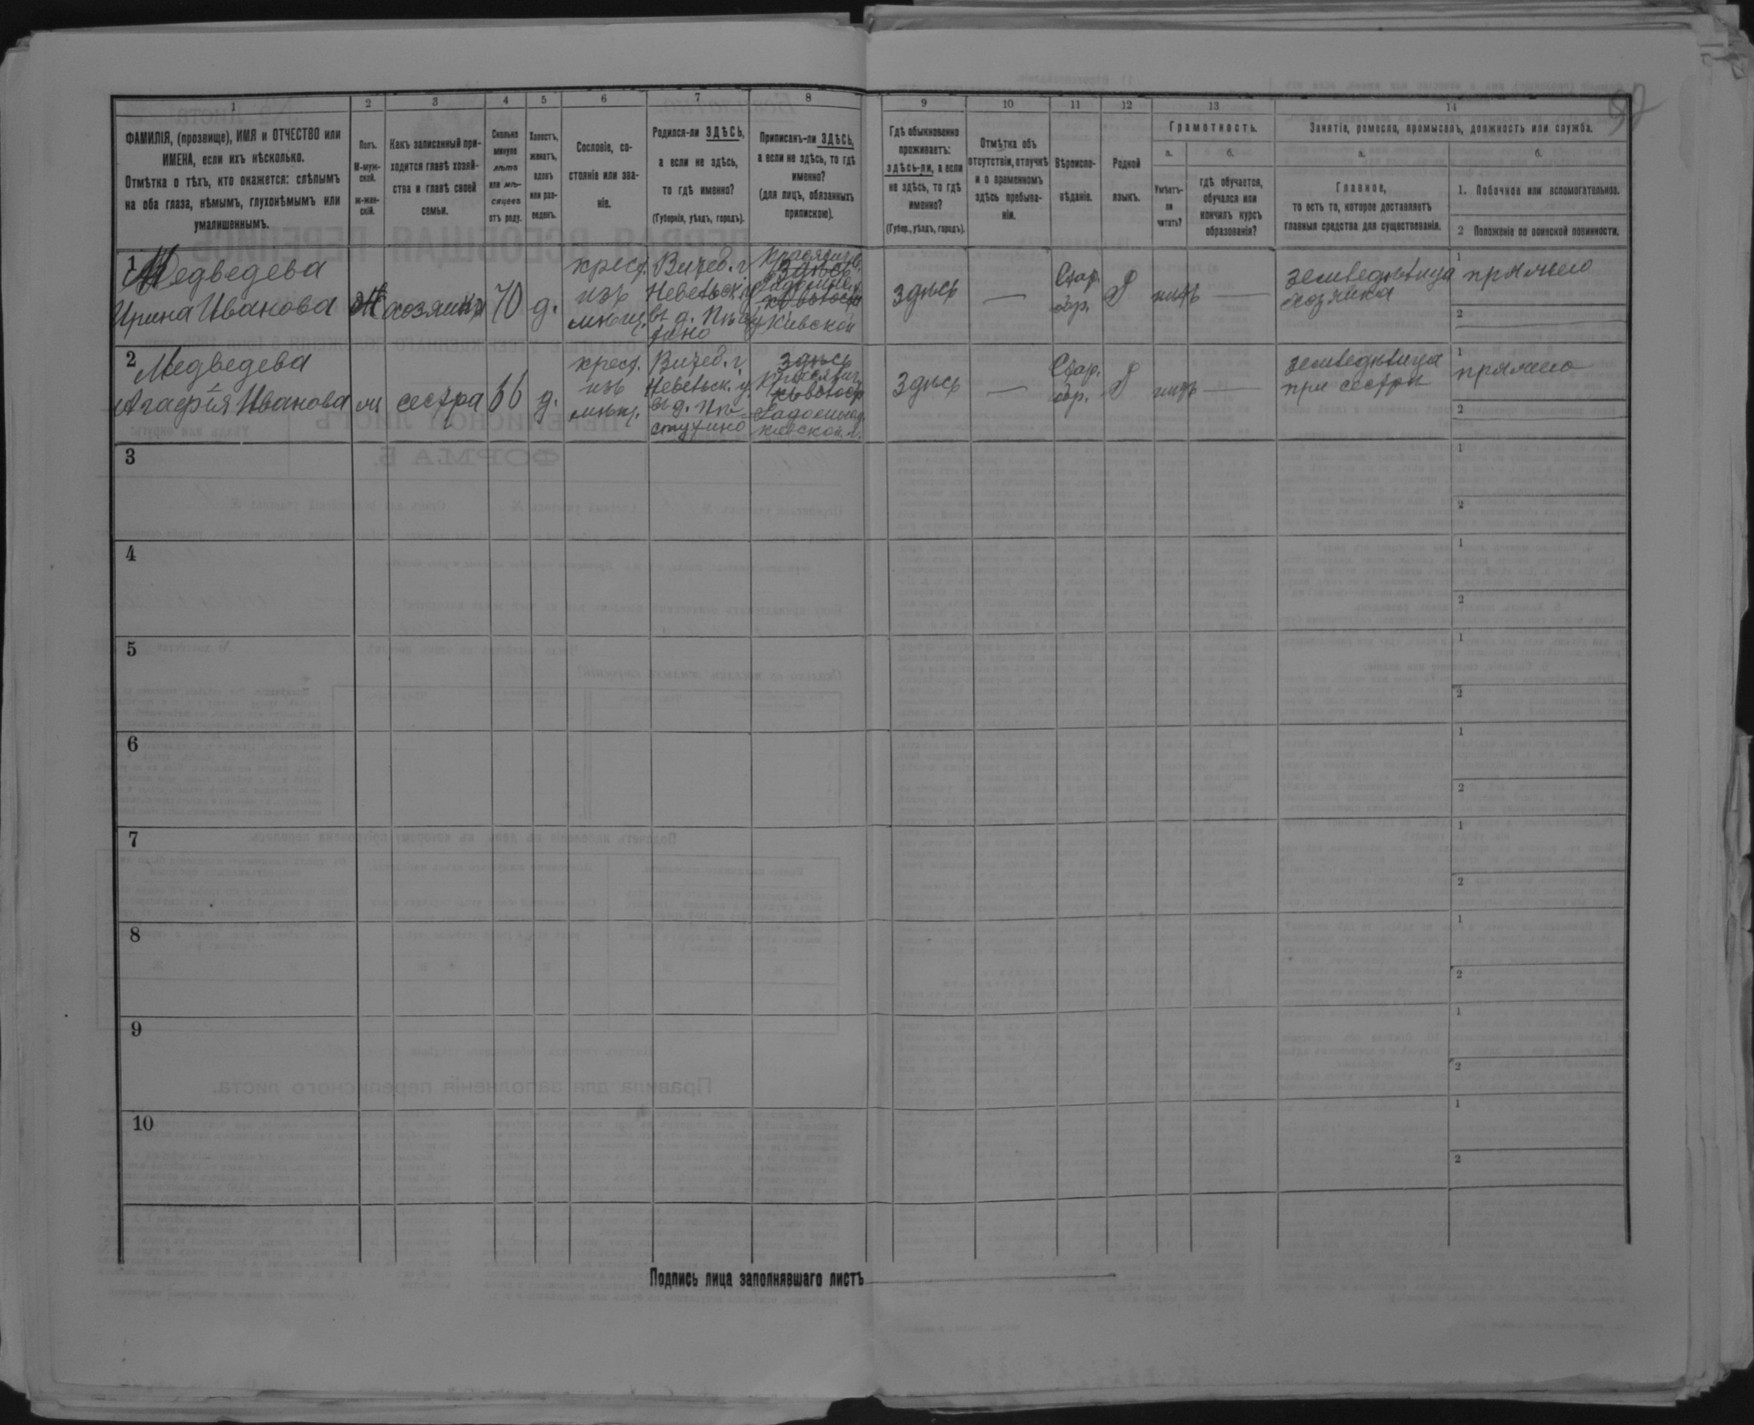 1 2 3 4 5 6 7 8 9 10 11 12 13 14
ФАМИЛІЯ, (прозвище), ИМЯ и ОТЧЕСТВО или
ИМЕНА, если ихъ нѣсколько.
Отмѣтка о тѣхъ, кто окажется: слѣпымъ
на оба глаза, нѣмымъ, глухонѣмымъ или
умалишеннымъ.
Полъ.
М-муж-
ской.
ж-жен-
скій.
Какъ записанный при-
ходится главѣ хозяй-
ства и главѣ своей
семьи.
Сколько
минуло
лѣтъ
или мѣ-
сяцевъ
отъ роду.
Холостъ,
женатъ,
вдовъ
или раз-
веденъ.
Сословіе, со-
стояніе или зва-
ніе.
Родился-ли ЗДѢСЬ,
а если не здѣсь,
то гдѣ именно?
(Губернія, уѣздъ, городъ).
Приписанъ-ли ЗДѢСЬ,
а если не здѣсь, то гдѣ
именно?
(для лицъ, обязанныхъ
припискою).
Гдѣ обыкновенно
проживаетъ:
здѣсь-ли, а если
не здѣсь, то гдѣ
именно?
(Губер., уѣздъ, городъ).
Отмѣтка объ
отсутствіи, отлучкѣ
и о временномъ
здѣсь пребыва-
ніи.
Вѣроиспо-
вѣданіе.
Родной
языкъ.
Грамотность.
а.
Умѣетъ-
ли
читать?
б.
гдѣ обучается,
обучался или
кончилъ курсъ
образованія?
Занятіе, ремесло, промыселъ, должность или служба.
а.
Главное,
то есть то, которое доставляетъ
главныя средства для существованія.
б.
1. Побочное или вспомогательное.
2 Положеніе по воинской повинности.
1 Медведева
Ирина Иванова
Ж
хозяинъ
70
д.
крест.
изъ
Витеб. г.
Невельск. у.
здѣсь
здѣсь
—
Стар.
обр.
Р
нитъ
—
земледѣлица
хозяйка
1 прямаго
2
2 Медведева
Агафія Иванова
м
сестра
д.
крест.
изъ
Витеб. г.
Невельск. у.
здѣсь
здѣсь
—
Стар.
обр.
Р
нитъ
—
земледѣлица
при сестрѣ
1 прямаго
2
3
1
2
4
1
2
5
1
2
6
1
2
7
1
2
8
1
2
9
1
2
10
1
2
Подпись лица заполнявшаго листъ